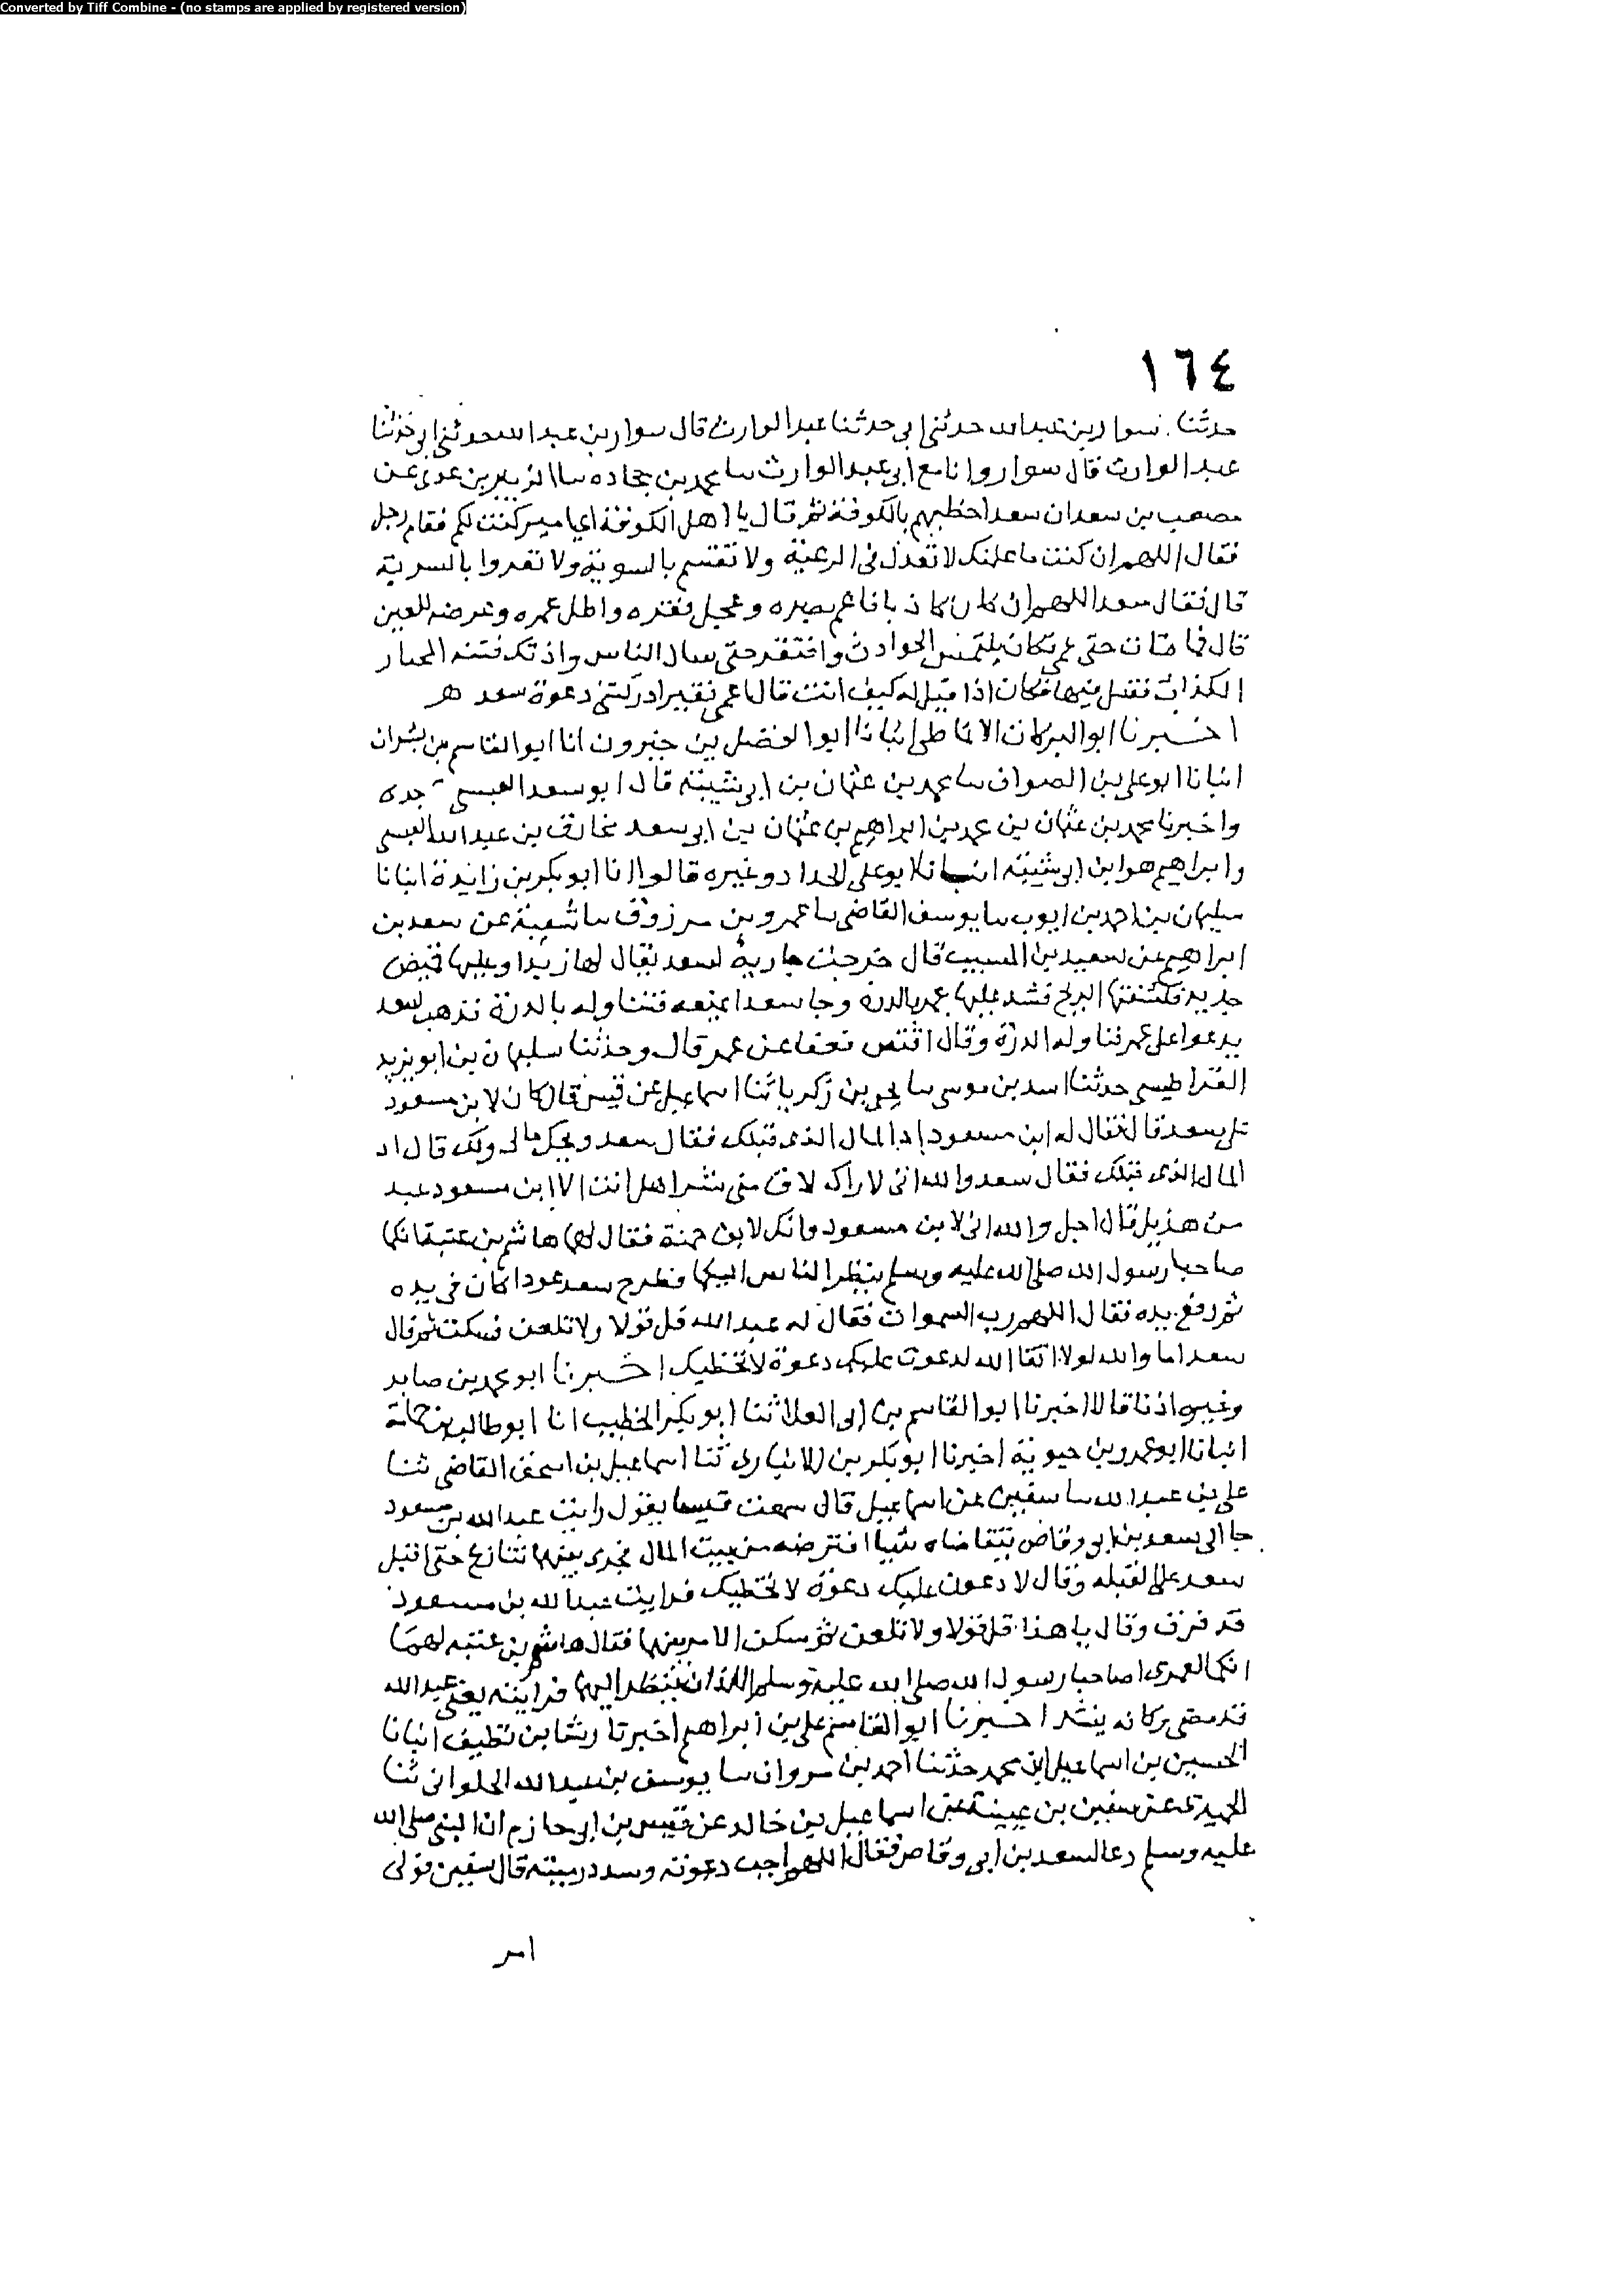 Converted by Tiff Combine - (no stamps are applied by registered version)
١٦٤
حدثنا سوار بن عبد الله حدثني ابي حدثنا عبد الوارث قال سوار بن عبد الله حدثني ابي حدثنا
عبد الوارث قال سوار وانا مع ابي عبد الوارث سا محمد بن جحاده سا الزبير بن عدى عن
مصعب بن سعد ان سعدا خطبهم بالكوفة ثم قال يا اهل الكوفة اي امير كنت لكم فقام رجل
فقال اللهم ان كنت ما علمتك لا تعدل في الرعية ولا تقسم بالسوية ولا تغزوا بالسرية
قال فقال سعد اللهم ان كان كاذبا فاعم بصره وعجل فقره واطل عمره وعرضه للفتن
قال فما مات حتى عمى فكان يلتمس الجوادث وافتقر حتى سال الناس وادرك فتنه المختار
الكذاب فقتل فيها فكان اذا قيل له كيف انت قال اعمى فقير ادركتني دعوة سعد هـ
اخبرنا ابو البركات الانماطي انبانا ابو الفضل بن خيرون انا ابو القاسم بن بشران
انبانا ابو على بن الصواف سا محمد بن عثمان بن ابي شيبته قال ابو سعد العبسي جده
واخبرنا محمد بن عثمان بن محمد بن ابراهيم بن عثمان بن ابي سعد مخارق بن عبد الله العبسى
وابراهيم هو ابن ابي شيبته انبانا ابو على الحداد وغيره قالوا انا ابو بكر بن زايدة انبانا
سليمان بن احمد بن ايوب سا يوسف القاضى سا عمرو بن مرزوق سا شعبة عن سعد بن
ابراهيم عن سعيد بن المسيب قال خرجت جارية لسعد يقال لها زيدا وعليها قميص
جديد فكشفتها الريح فشد عليها عمر بالدرة وجا سعد ليمنعه فتناوله بالدرة فذهب سعد
يدعوا على عمر فناوله الدرة وقال اقتص فعفا عن عمر قال وحدثنا سليمان بن ابو يزيد
القراطيسى حدثنا اسد بن موسى سا يحيى بن زكريا ثنا اسماعيل عن قيس قال كان لابن مسعود
على سعد قال فقال له ابن مسعود اد المال الذى قبلك فقال سعد ويحك مالى ولك قال اد
المال الذى قبلك فقال سعد والله انى لاراك لاق منى شرا هل انت الا ابن مسعود عبد
من هذيل قال اجل والله انى لابن مسعود وانك لابن حمنة فقال لهما هاشم بن عتبة انكما
صاحبا رسول الله صلى الله عليه وسلم ينظر الناس اليكما فطرح سعد عودا كان في يده
ثم رفع يده فقال اللهم رب السموات فقال له عبد الله قل قولا ولا تلعن فسكت ثم قال
سعد اما والله لولا اتقا الله لدعوت عليك دعوة لا تخطيك اخبرنا ابو محمد بن صابر
وغيره اذنا قالا اخبرنا ابو القاسم بن ابي العلا ثنا ابو بكر الخطيب انا ابو طالب بن حمامة
انبانا ابو عمرو بن حيوية اخبرنا ابو بكر بن الانبارى ثنا اسماعيل بن اسحق القاضى ثنا
على بن عبد الله سا سفين عن اسماعيل قال سمعت قيسا يقول رايت عبد الله بن مسعود
جا الى سعد بن ابي وقاص يتقاضاه شيا اقترضه من بيت المال فجرى بينهما تنازع حتى اقبل
سعد على القبله وقال لادعون عليك دعوة لا تخطيك فرايت عبد الله بن مسعود
قد فرق وقال يا هذا قل قولا ولا تلعن ثم سكن الامر بينهما فقال هاشم بن عتبه لهما
انكما لعمرى صاحبا رسول الله صلى الله عليه وسلم اللذان ينظر اليهما فرايته يعنى عبد الله
قد مضى وكانه ينتدر اخبرنا ابو القاسم على بن ابراهيم اخبرنا رشا بن نظيف انبانا
الحسين بن اسماعيل ابن محمد حدثنا احمد بن مروان سا يوسف بن عبد الله الحلوانى ثنا
الحميدى عن سفين بن عيينة عن اسماعيل بن خالد عن قيس بن ابي حازم ان النبي صلى الله
عليه وسلم دعا لسعد بن ابي وقاص فقال اللهم اجب دعوته وسدد رميته قال سفين فولى
امر